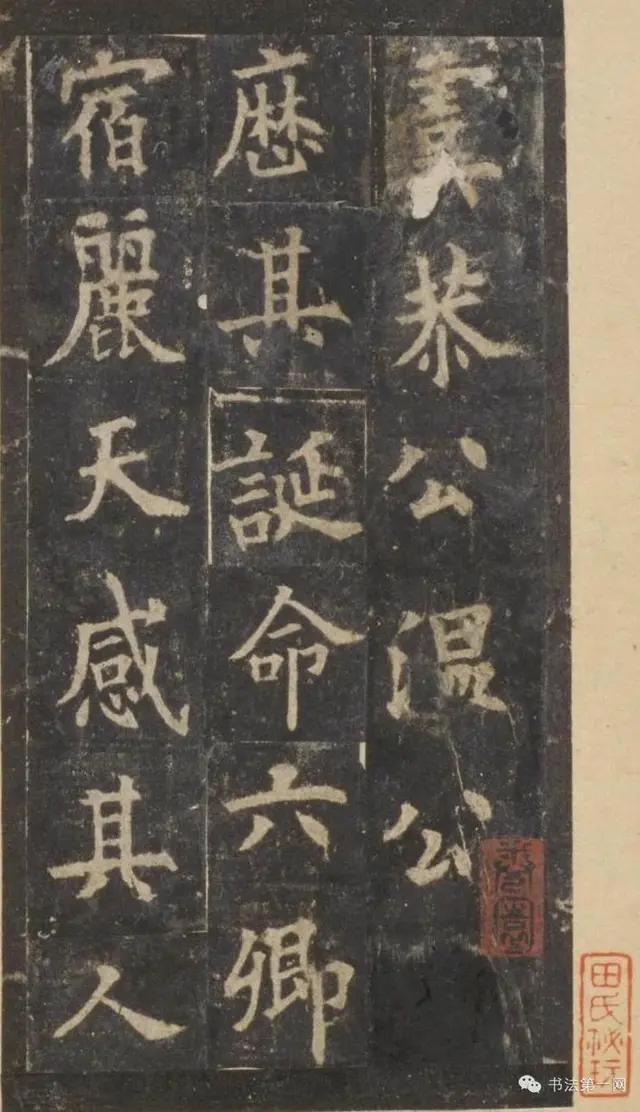 虞恭公温公
歴其誕命六卿
宿麗天感其人
田氏祕玩
书法第一网